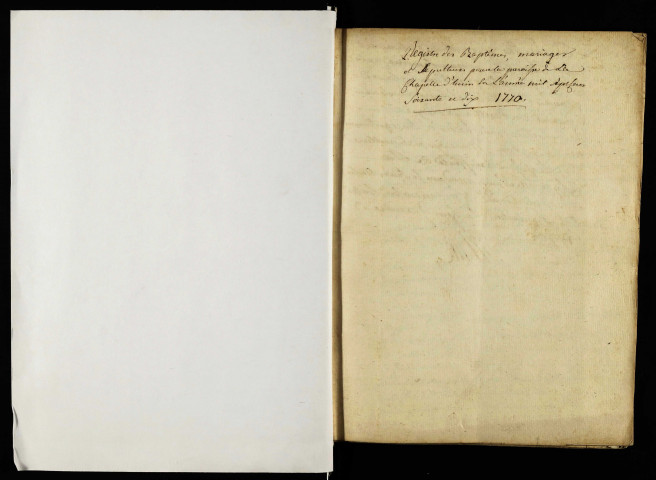 Registre des Baptêmes, mariages
et Sepultures pour la paroisse de la
Chapelle d'huin L'année mil Sept Cens
Soixante et dix 1770.